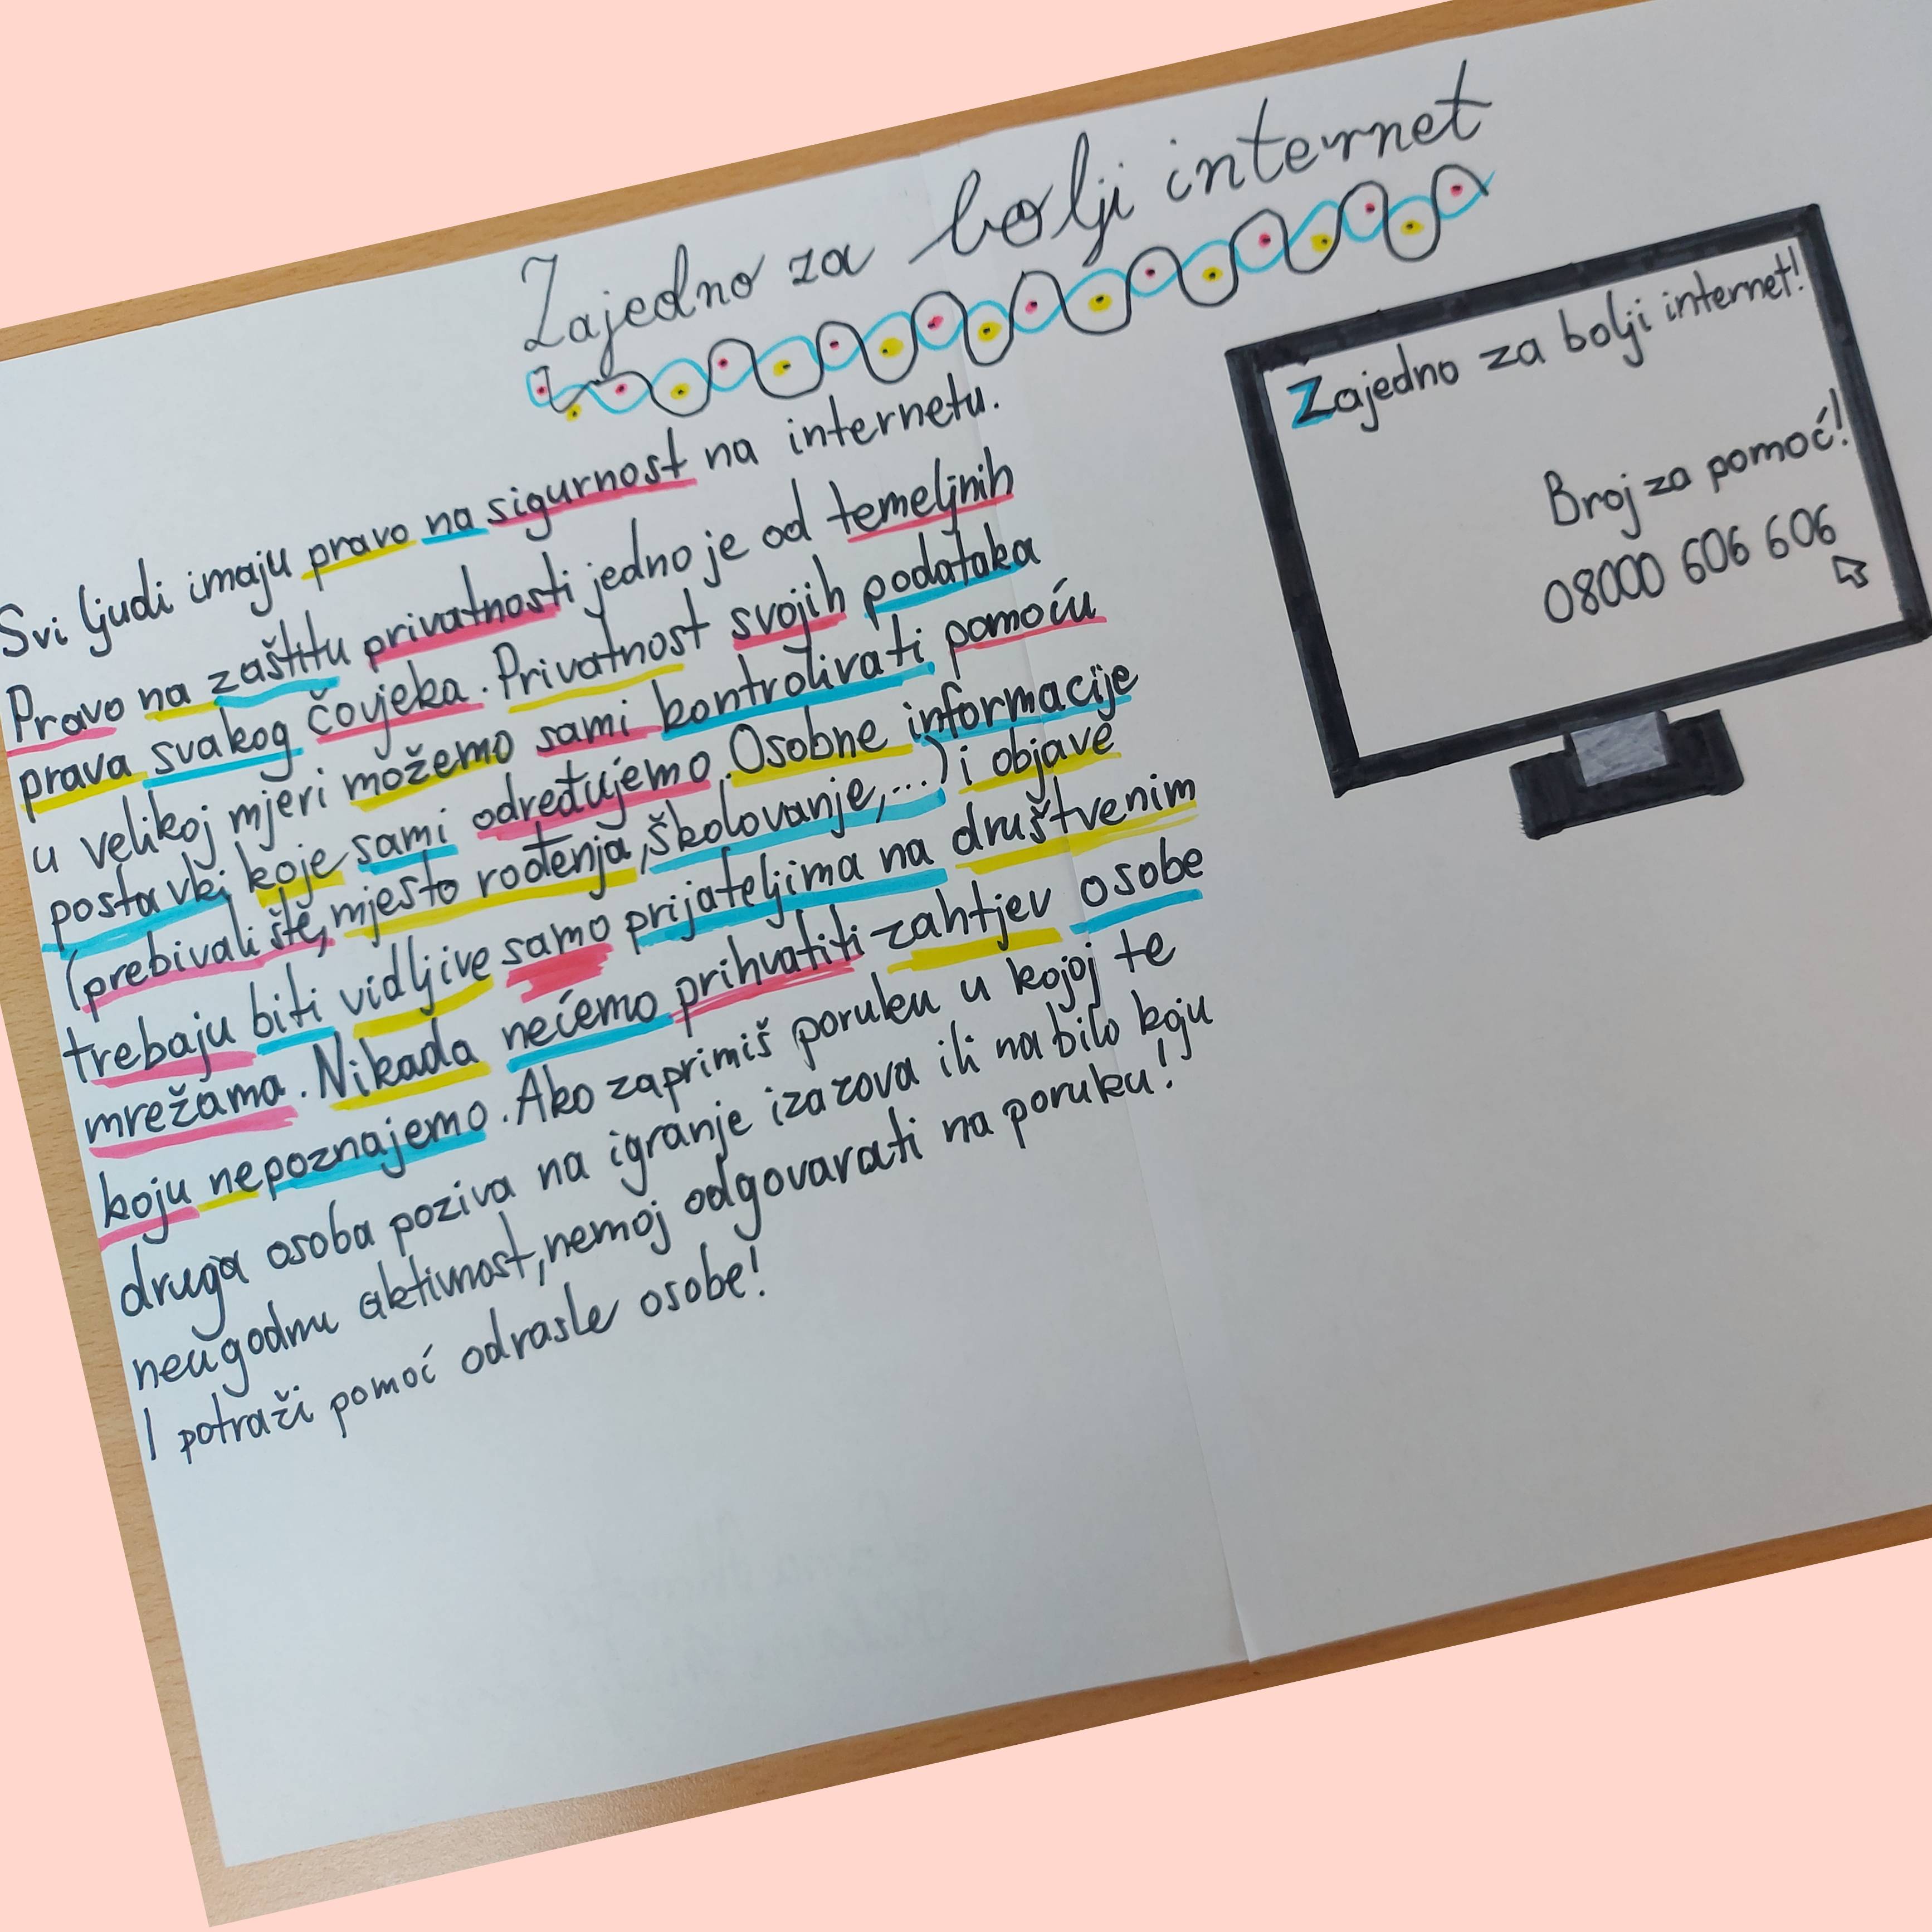 Zajedno za bolji internet
Svi ljudi imaju pravo na sigurnost na internetu.
Pravo na zaštitu privatnosti jedno je od temeljnih
prava svakog čovjeka. Privatnost svojih podataka
u velikoj mjeri možemo sami kontrolirati pomoću
postavki koje sami određujemo. Osobne informacije
(prebivalište, mjesto rođenja, školovanje,...) i objave
trebaju biti vidljive samo prijateljima na društvenim
mrežama. Nikada nećemo prihvatiti zahtjev osobe
koju nepoznajemo. Ako zaprimiš poruku u kojoj te
druga osoba poziva na igranje izazova ili na bilo koju
neugodnu aktivnost, nemoj odgovarati na poruku!
I potraži pomoć odrasle osobe!
Zajedno za bolji internet!
Broj za pomoć!
08000 606 606